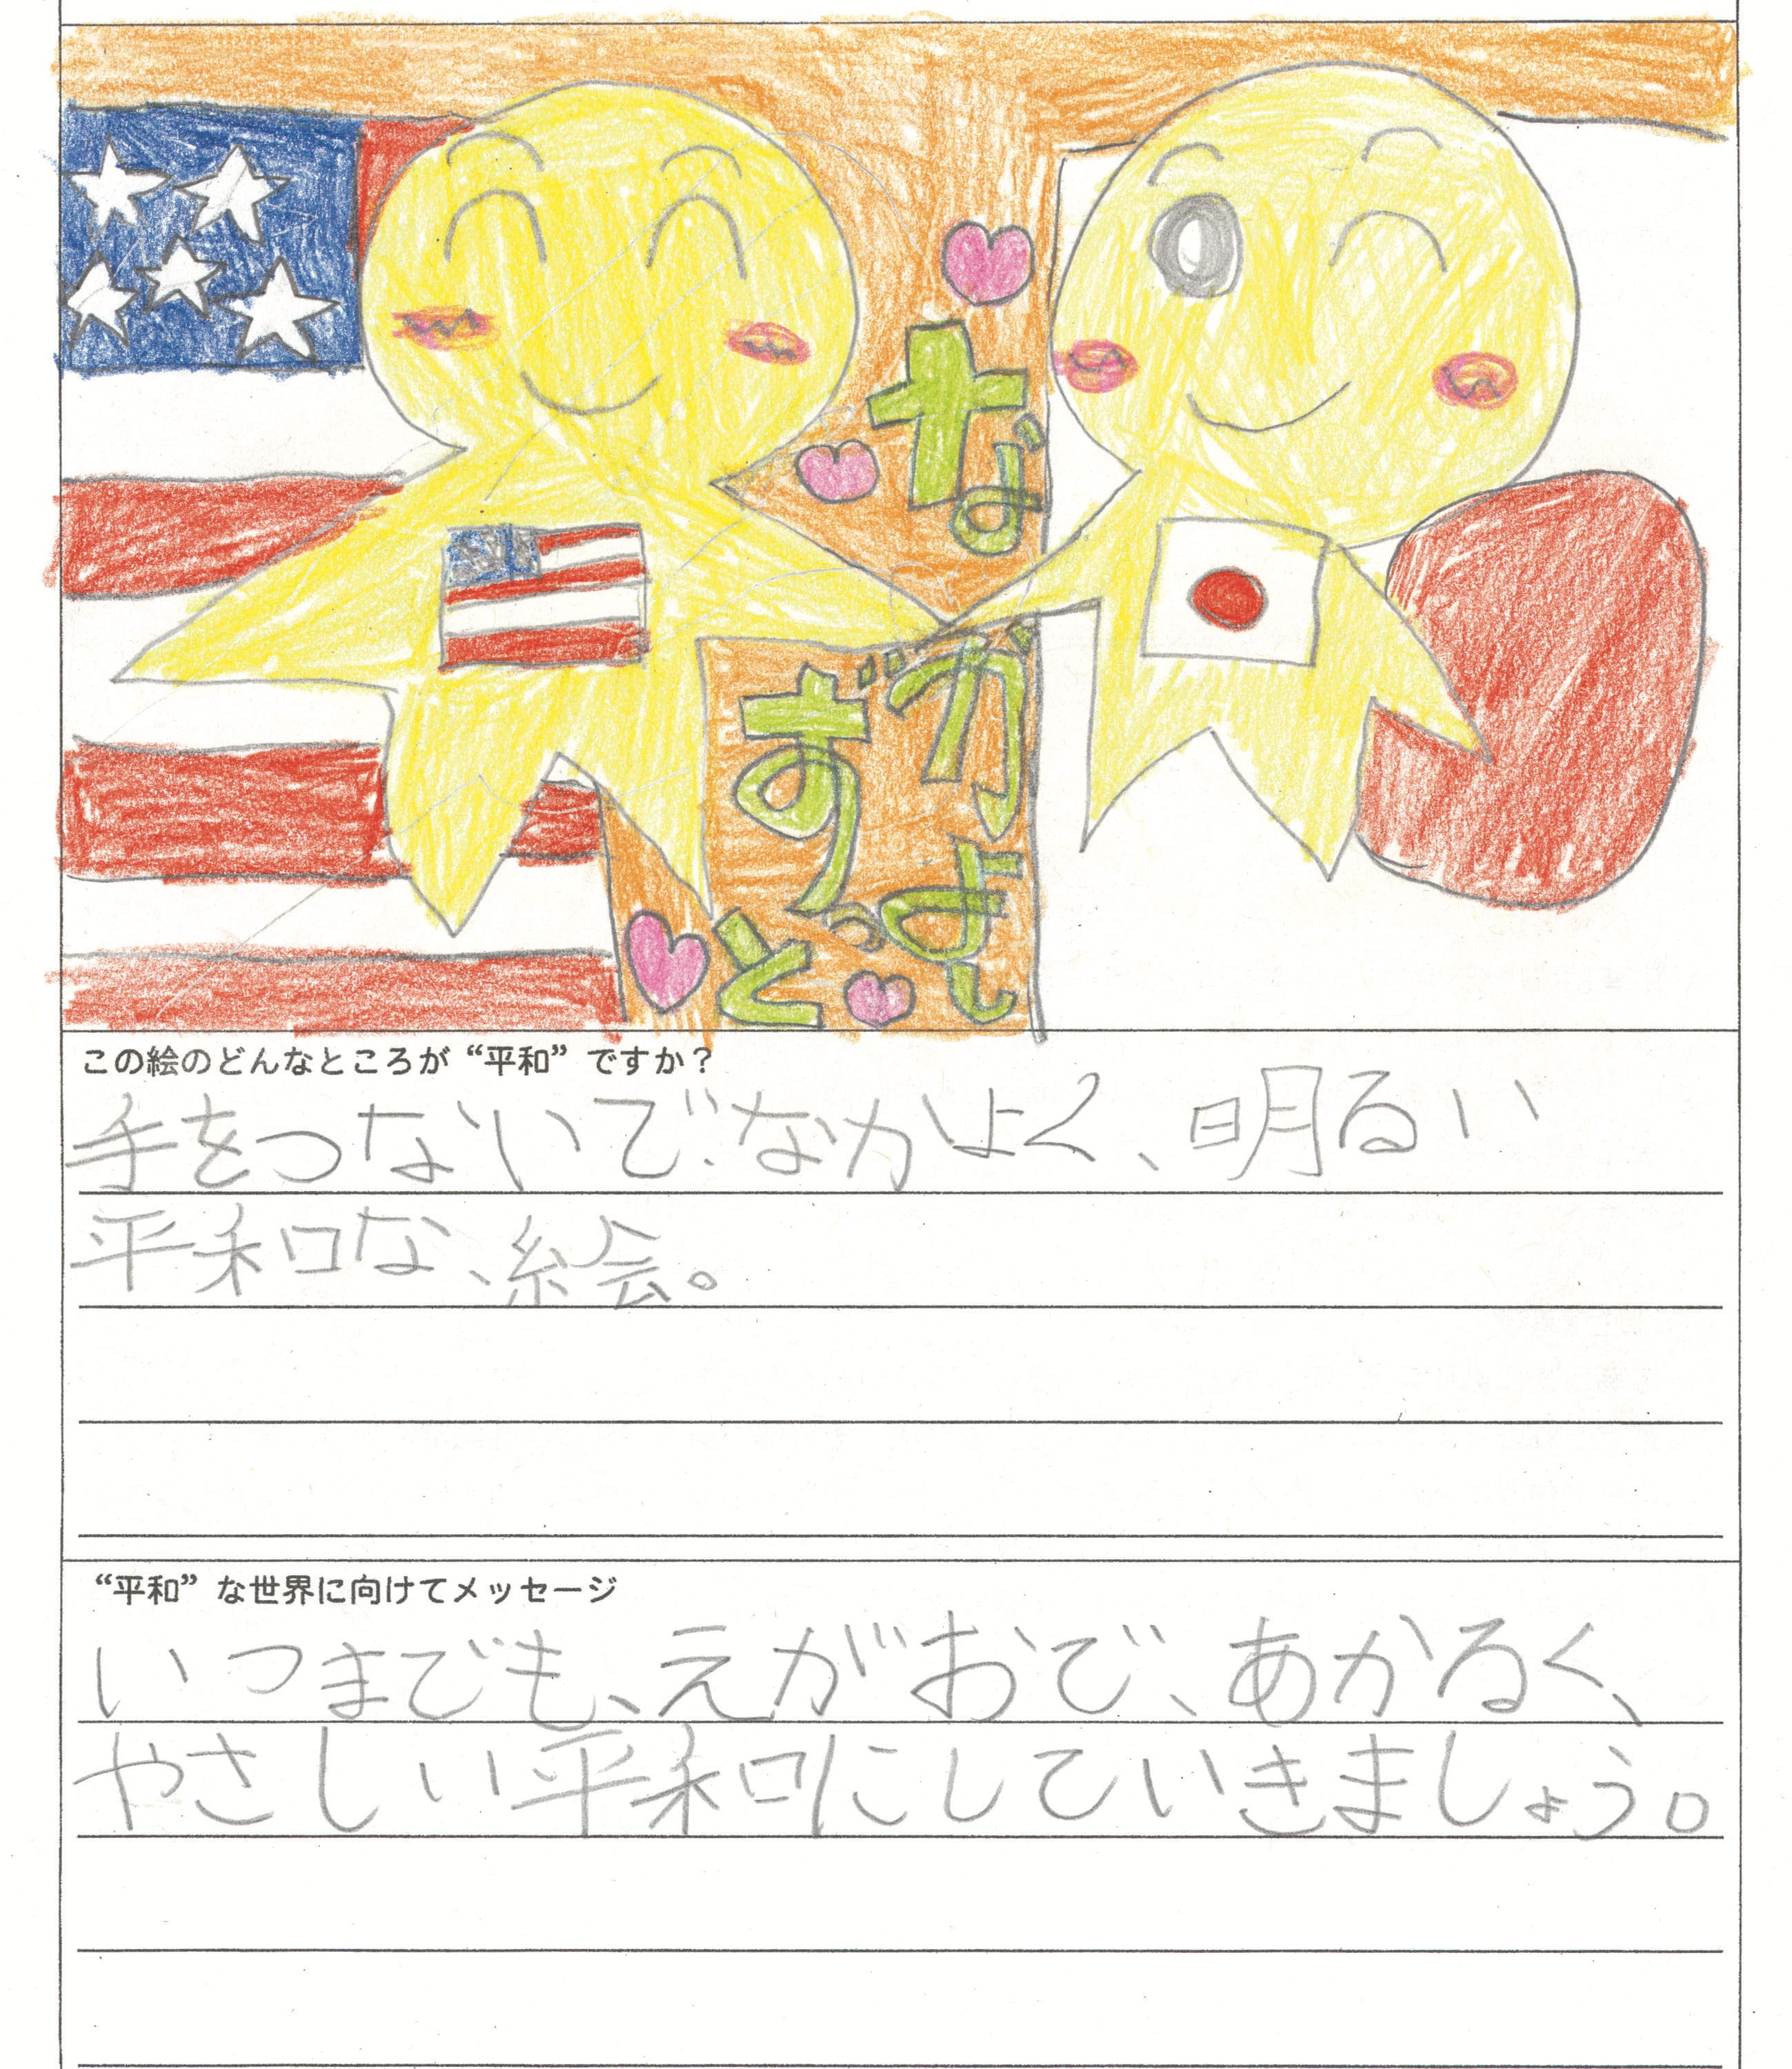 なかよし
ずっと
この絵のどんなところが“平和”ですか？
手をつないで、なかよく、明るい
平和な、絵会。
“平和”な世界に向けてメッセージ
いつまでも、えがおで、あかるく、
やさしい平和にしていきましょう。